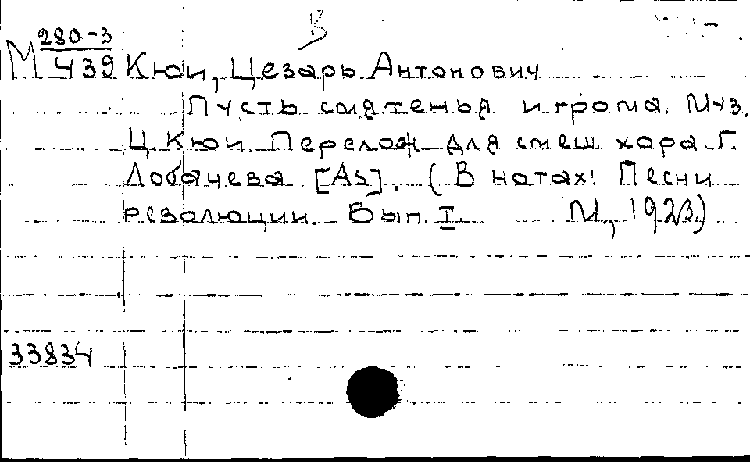 В
М 280-3
439 Кюи, Цезарь Антонович
Пусть смятенья и грома. Муз.
Ц. Кюи. Перелож. для смеш. хора Г.
Лобачева [As]. (В нотах: Песни
революции. Вып. I М., 1923)
33834